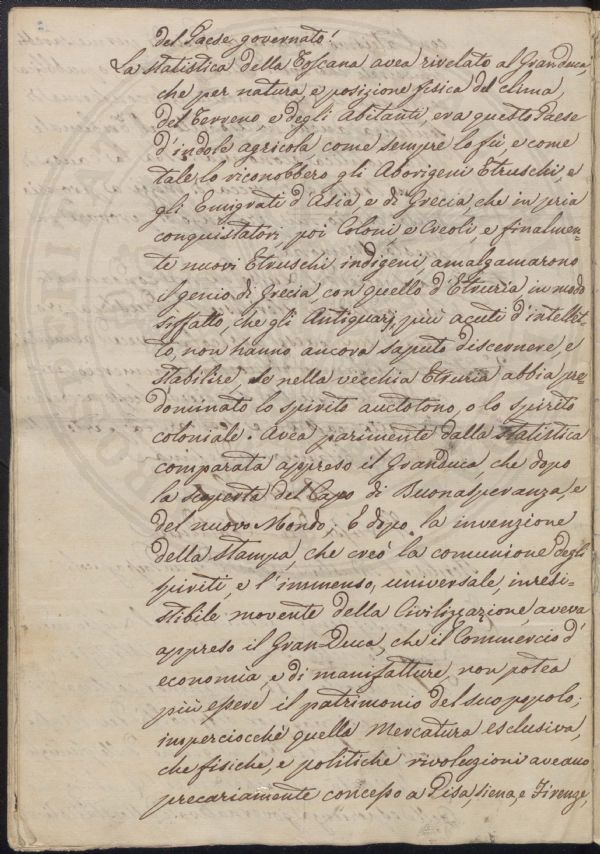 del Paese governato!
La Statistica della Toscana avea rivelato al Granduca,
che per natura, e posizione fisica del clima,
del Terreno, e degli Abitanti, era questo Paese
d'indole agricola come sempre lo fù, e come
tale lo riconobbero gli Aborigeni Etruschi e
gli Emigrati d'Asia e di Grecia, che in pria
conquistatori, poi Coloni e Creoli, e finalmen=
te nuovi Etruschi indigeni, amalgamarono
il genio di Grecia, con quello d'Etruria in modo
siffatto, che gli Antiquarj, più acuti d'intellet=
to, non hanno ancora saputo discernere, e
stabilire, se nella vecchia Etruria abbia pre=
dominato lo spirito auctotono, o lo spirito
coloniale. Avea parimente dalla Statistica
comparata appreso il Granduca, che dopo
la scoperta del Capo di Buonasperanza, e
del nuovo Mondo; E dopo la invenzione
della Stampa, che creò la comunione degli
spiriti, e l'immenso, universale, inresi=
stibile movente della Civilizzazione, aveva
appreso il GranDuca, che il Commercio d'
economia, e di manifatture, non potea
più essere il patrimonio del suo popolo;
imperciocchè quella Mercatura esclusiva,
che fisiche, e politiche rivoluzioni aveano
precariamente concesso a Pisa, Siena, e Firenze,